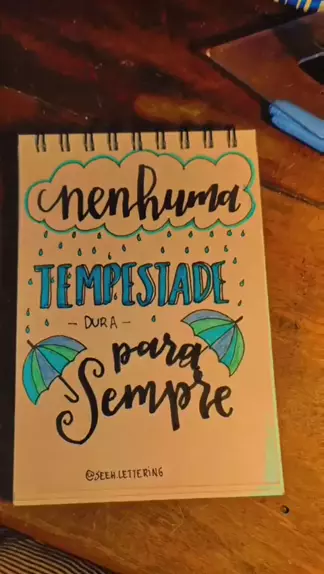 nenhuma
TEMPESTADE
- DURA -
para
Sempre
@SEEH.LETTERING